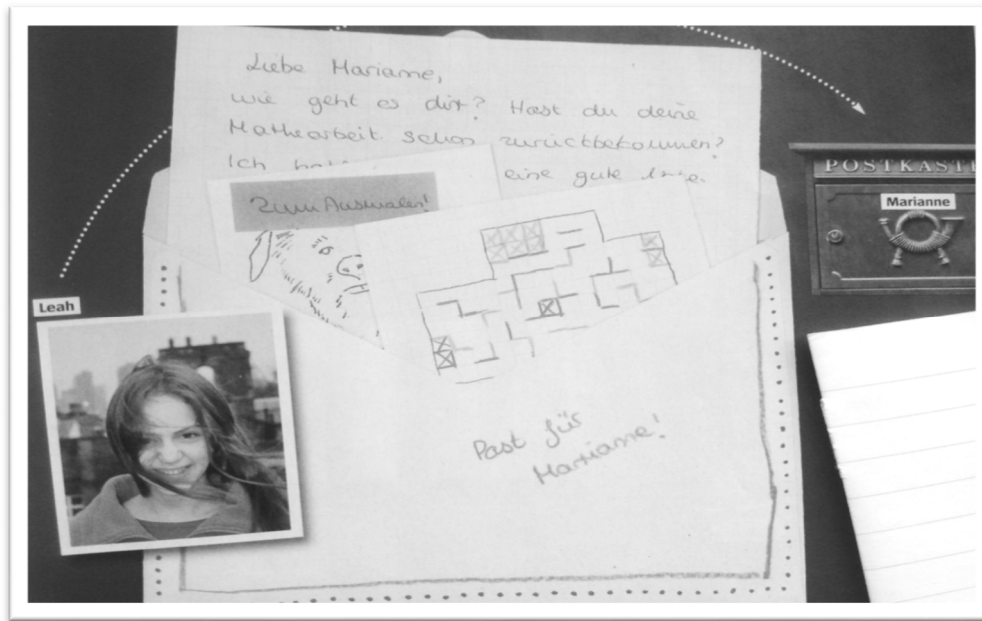 Liebe Marianne,
wie geht es dir? Hast du deine
Mathearbeit schon zurückbekommen?
Ich eine gute
Zum Ausmalen!
POSTKAST
Marianne
Leah
Post für
Marianne!